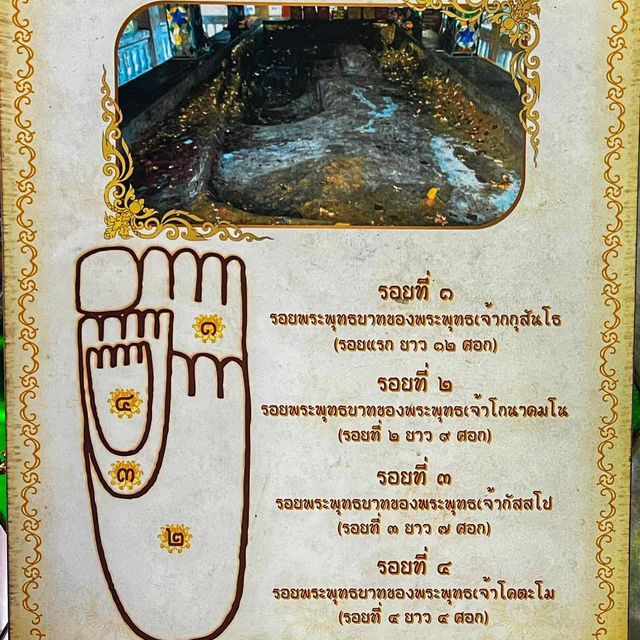 รอยที่ ๑
รอยพระพุทธบาทของพระพุทธเจ้ากกุสันโธ
(รอยแรก ยาว ๑๒ ศอก)
รอยที่ ๒
รอยพระพุทธบาทของพระพุทธเจ้าโกนาคมโน
(รอยที่ ๒ ยาว ๙ ศอก)
รอยที่ ๓
รอยพระพุทธบาทของพระพุทธเจ้ากัสสโป
(รอยที่ ๓ ยาว ๗ ศอก)
รอยที่ ๔
รอยพระพุทธบาทของพระพุทธเจ้าโคตะโม
(รอยที่ ๔ ยาว ๔ ศอก)
๑
๔
๓
๒